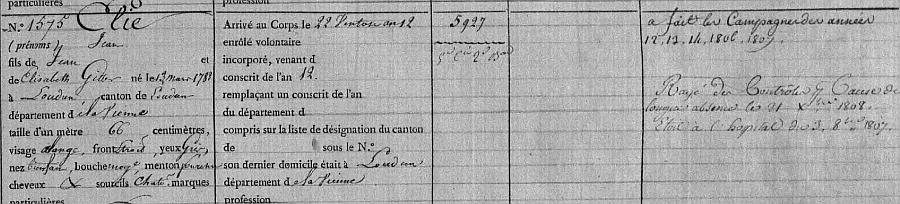 particulières
N.º 1575 Clie
(prénoms) Jean
fils de Jean et
de Elisabeth né le 13 mars 178
à Loudun, canton de Loudun
département d la Vienne
taille d'un mètre 66 centimètres,
visage front Etroit, yeux Gris
nez bouche moye, menton
cheveux & sourcils Chat. marques
particulières
profession
Arrivé au Corps le 22 Ventose an 12
enrôlé volontaire
incorporé, venant d
conscrit de l'an 12.
remplaçant un conscrit de l'an
du département d
compris sur la liste de désignation du canton
de sous le N.º
son dernier domicile était à Loudun
département d la Vienne
profession
5927
a fait les Campagnes des années
12. 13. 14. 1806. 1807.
Rayé des Controles p. Cause de
longue absence le 21 Xbre 1808.
Etait à l'hopital du 3. 8bre 1807.